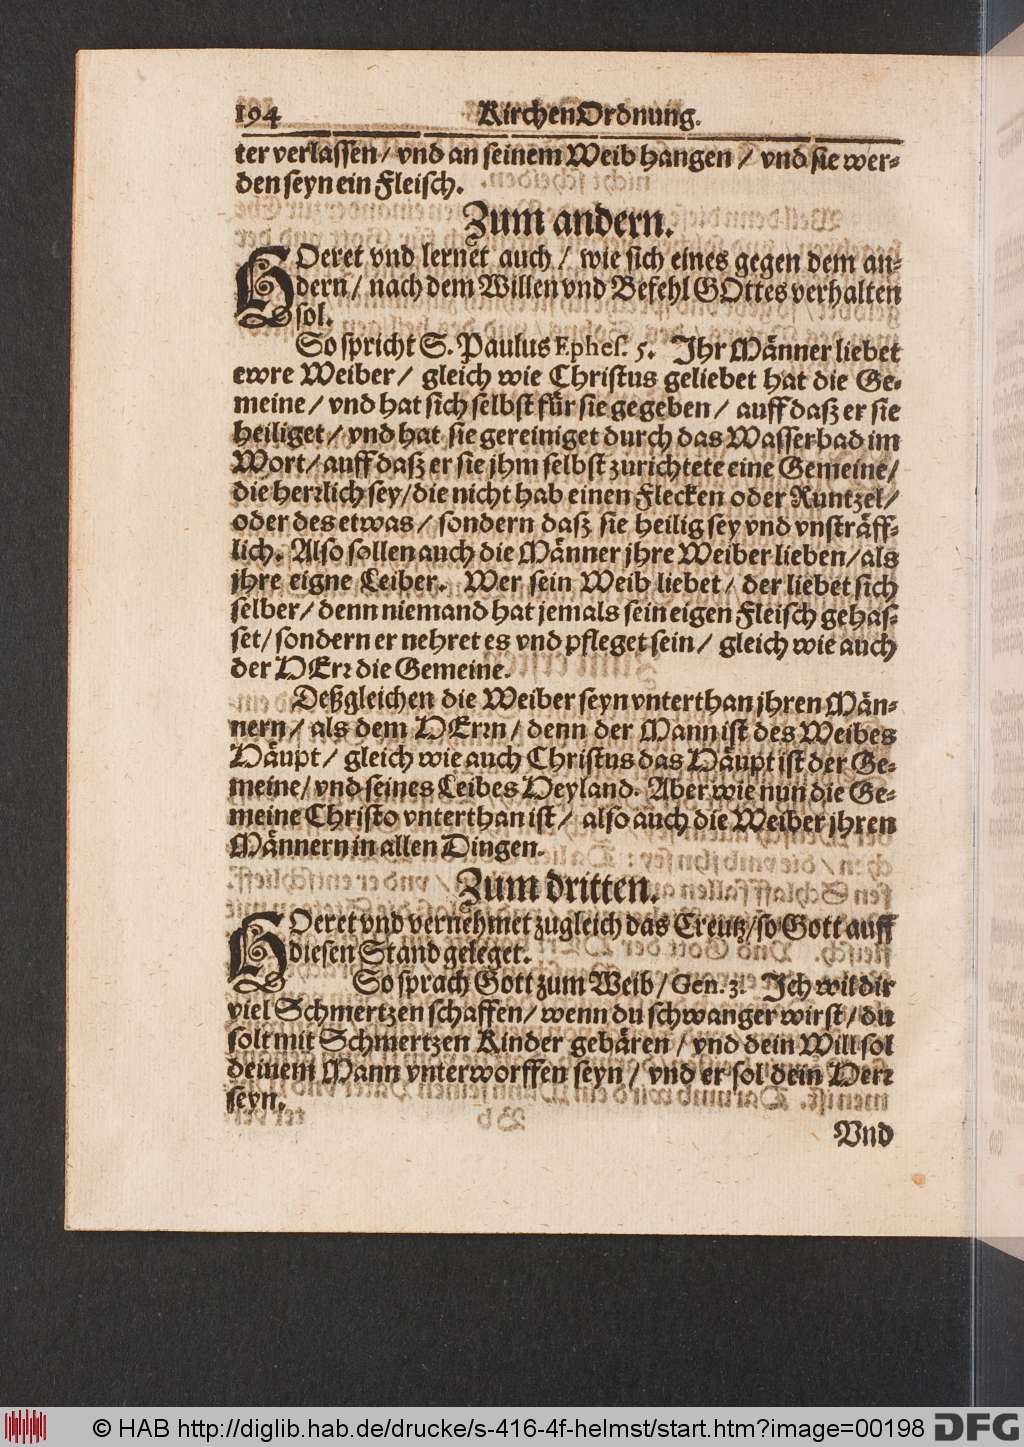 194 KirchenOrdnung.
ter verlassen / vnd an seinem Weib hangen / vnd sie wer-
den seyn ein Fleisch.
Zum andern.
HOeret vnd lernet auch / wie sich eines gegen dem an-
dern / nach dem Willen vnd Befehl GOttes verhalten
sol.
So spricht S. Paulus Ephes. 5. Jhr Männer liebet
ewre Weiber / gleich wie Christus geliebet hat die Ge-
meine / vnd hat sich selbst für sie gegeben / auff daß er sie
heiliget / vnd hat sie gereiniget durch das Wasserbad im
Wort / auff daß er sie jhm selbst zurichtete eine Gemeine /
die herrlich sey / die nicht hab einen Flecken oder Runtzel /
oder des etwas / sondern daß sie heilig sey vnd vnsträff-
lich. Also sollen auch die Männer jhre Weiber lieben / als
jhre eigne Leiber. Wer sein Weib liebet / der liebet sich
selber / denn niemand hat jemals sein eigen Fleisch gehas-
set / sondern er nehret es vnd pfleget sein / gleich wie auch
der HErr die Gemeine.
Deßgleichen die Weiber seyn vnterthan jhren Män-
nern / als dem HErrn / denn der Mann ist des Weibes
Häupt / gleich wie auch Christus das Häupt ist der Ge-
meine / vnd seines Leibes Heyland. Aber wie nun die Ge-
meine Christo vnterthan ist / also auch die Weiber jhren
Männern in allen Dingen.
Zum dritten.
HOeret vnd vernehmet zugleich das Creutz / so Gott auff
diesen Stand geleget.
So sprach Gott zum Weib / Gen. 3. Jch wil dir
viel Schmertzen schaffen / wenn du schwanger wirst / du
solt mit Schmertzen Kinder gebären / vnd dein Will sol
deinem Mann vnterworffen seyn / vnd er sol dein Herr
seyn.
Vnd
© HAB http://diglib.hab.de/drucke/s-416-4f-helmst/start.htm?image=00198 DFG